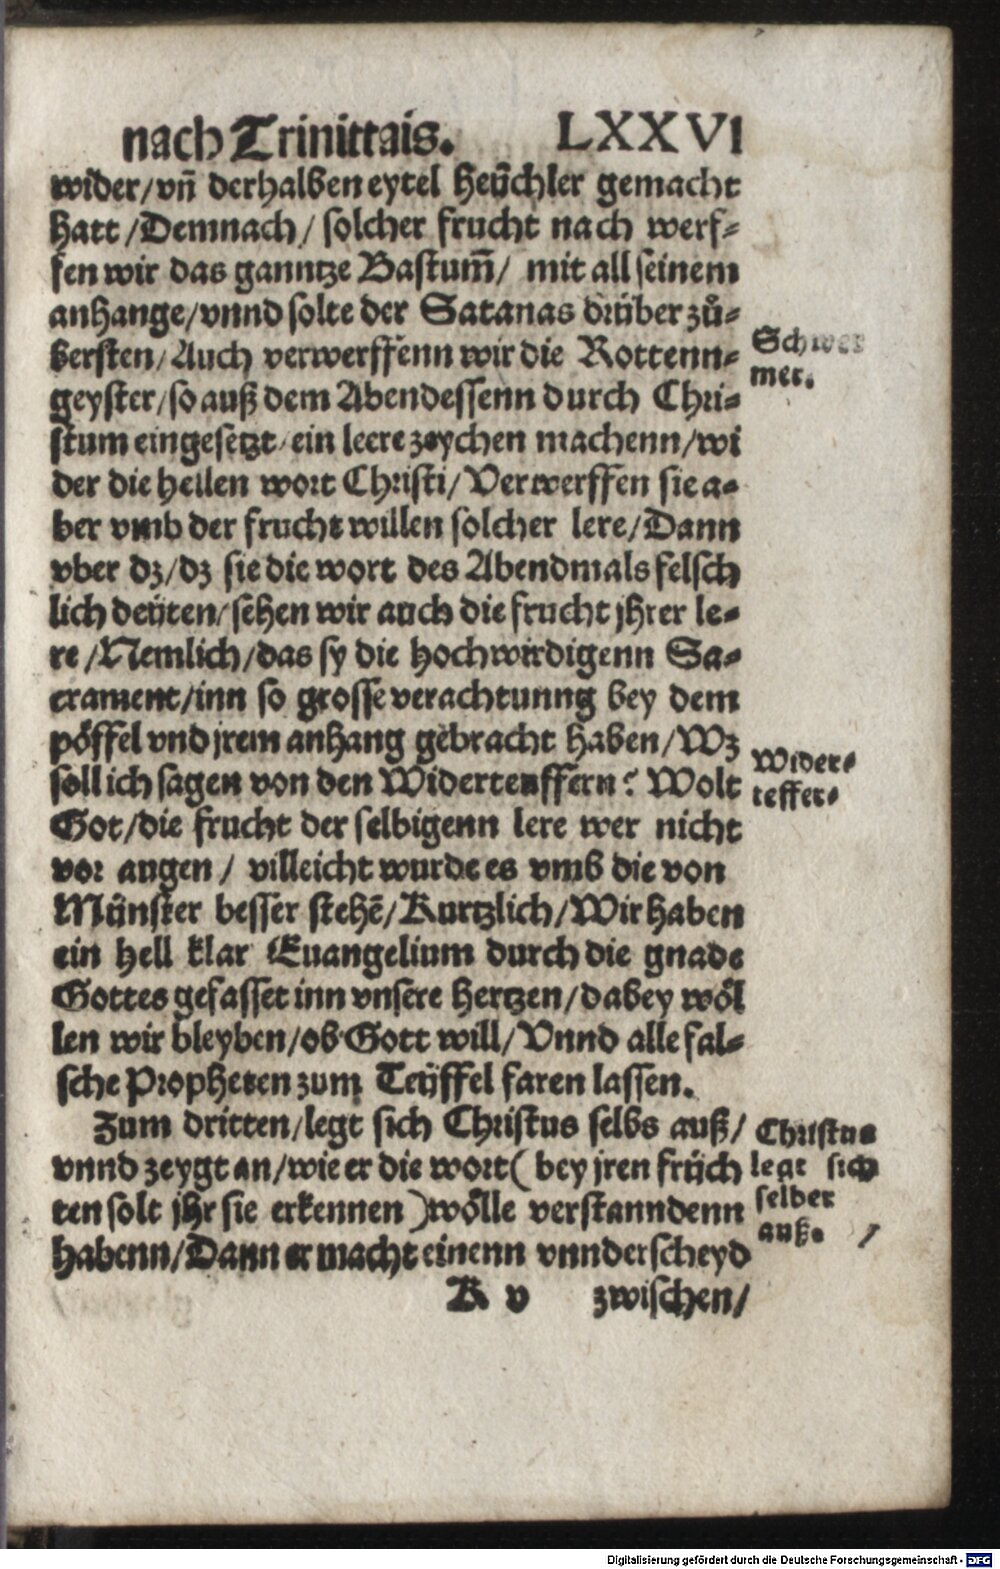 nach Trinittais. LXXVI
wider/vn̄ derhalben eytel Heüchler gemacht
hatt/Demnach/solcher frucht nach werf⸗
fen wir das ganntze Bastum̄/ mit all seinem
anhange/vnnd solte der Satanas drüber zů⸗
bersten/Auch verwerffenn wir die Rottenn⸗
geyster/so auß dem Abendessenn durch Chri⸗
stum eingesetzt/ein leere zeychen machenn/wi
der die hellen wort Christi/Verwerffen sie a⸗
ber vmb der frucht willen solcher lere/Dann
vber dz/dz sie die wort des Abendmals felsch
lich deüten/sehen wir auch die frucht jhrer le⸗
re/Nemlich/das sy die hochwirdigenn Sa⸗
crament/inn so grosse verachtunng bey dem
pöffel vnd jrem anhang gebracht haben/Wz
soll ich sagen von den Widerteuffern? Wolt
Got/die frucht der selbigenn lere wer nicht
vor augen/ villeicht wurde es vmb die von
Münster besser stehē/Kurtzlich/Wir haben
ein hell klar Euangelium durch die gnade
Gottes gefasset inn vnsere hertzen/dabey wöl
len wir bleyben/ob Gott will/Vnnd alle fal⸗
sche Propheten zum Teüffel faren lassen.
Zum dritten/legt sich Christus selbs auß/
vnnd zeygt an/wie er die wort( bey jren früch
ten solt jhr sie erkennen )wölle verstanndenn
habenn/Dann er macht einenn vnnderscheyd
K v zwischen/
Schwer
mer.
Wider⸗
teffer⸗
Christus
legt sich
selber
auß.
Digitalisierung gefördert durch die Deutsche Forschungsgemeinschaft - DFG